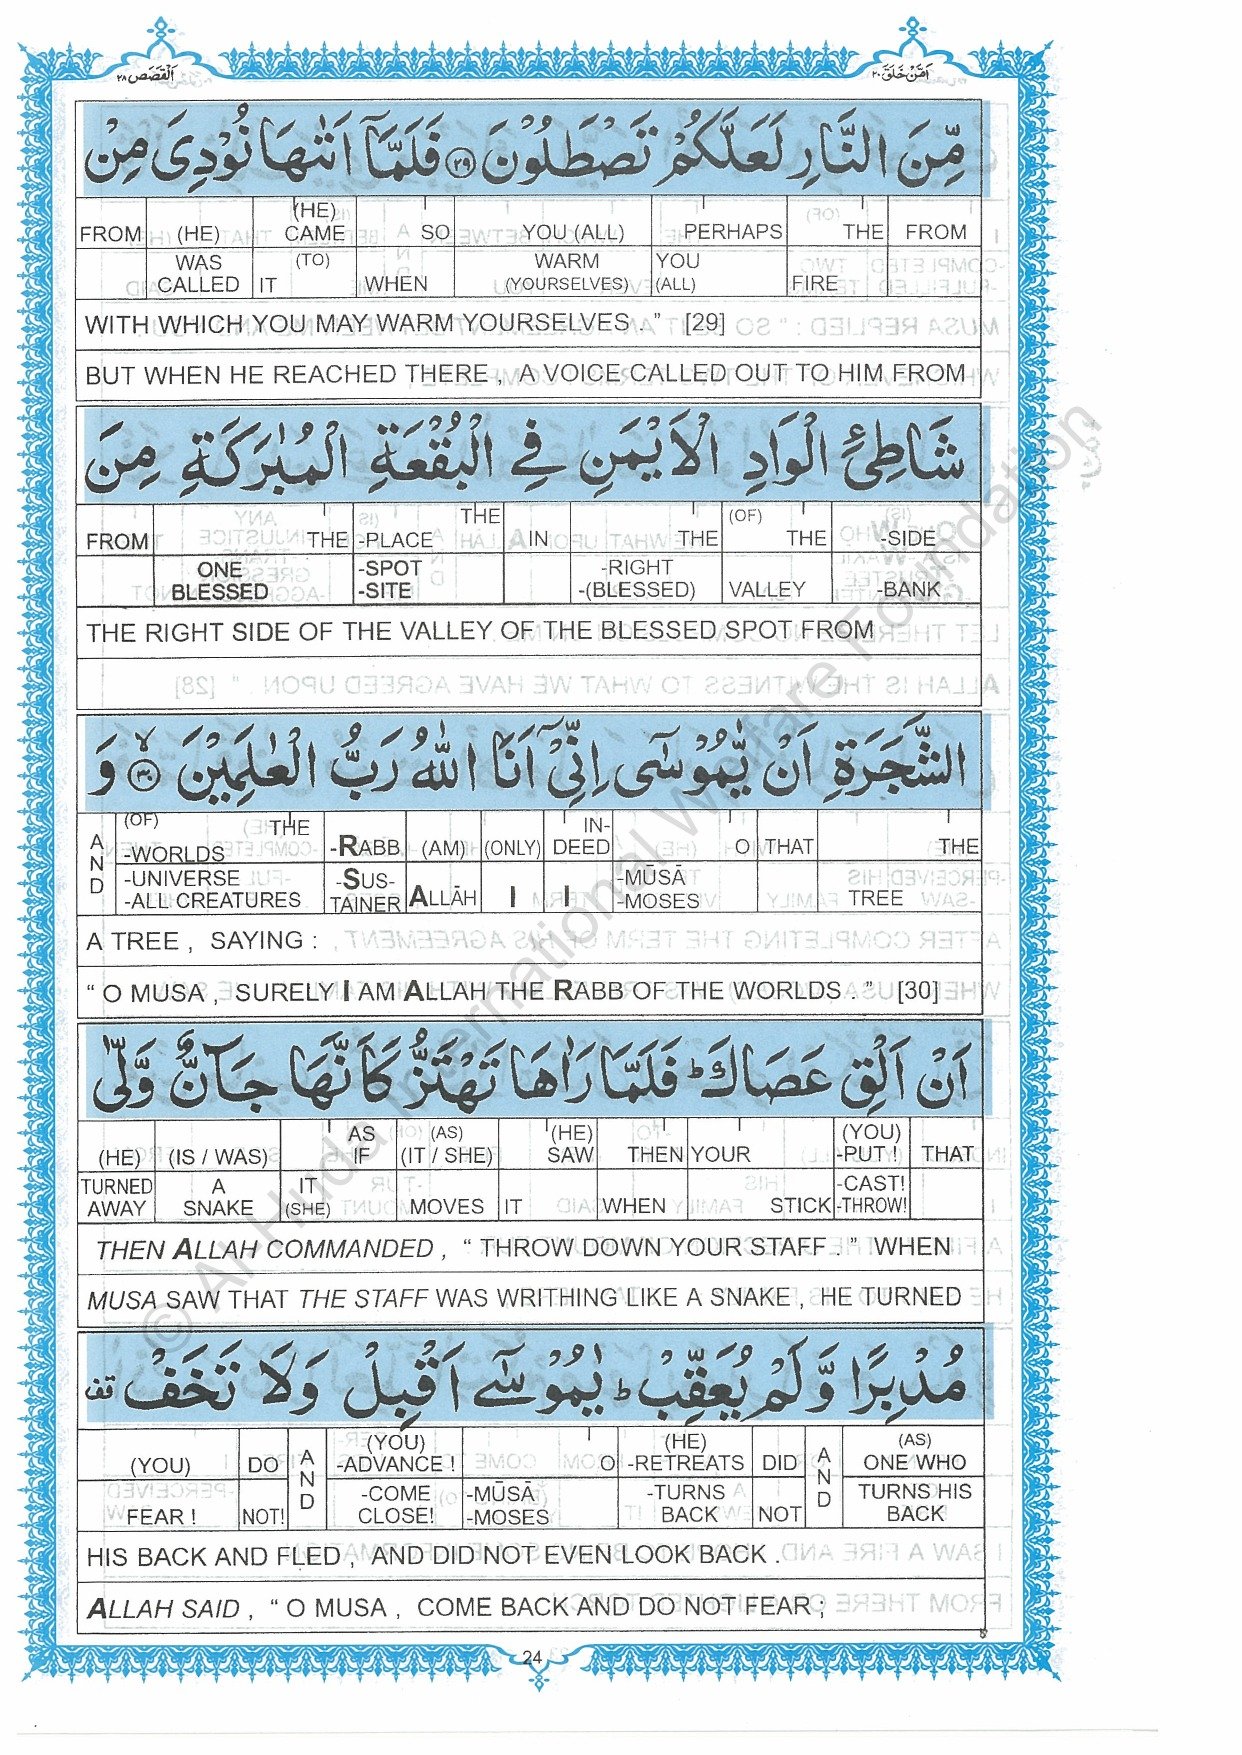 اَمَّنْ خَلَقَ ٢٠
اَلْقَصَص ٢٨
مِّنَ النَّارِ لَعَلَّكُمْ تَصْطَلُوْنَ ٢٩ فَلَمَّاۤ اَتٰىهَا نُوْدِىَ مِنْ
FROM (HE) (HE) CAME SO YOU (ALL) PERHAPS THE FROM
WAS CALLED IT (TO) WHEN WARM (YOURSELVES) YOU (ALL) FIRE
WITH WHICH YOU MAY WARM YOURSELVES . ” [29]
BUT WHEN HE REACHED THERE , A VOICE CALLED OUT TO HIM FROM
شَاطِئِ الْوَادِ الْاَيْمَنِ فِى الْبُقْعَةِ الْمُبٰرَكَةِ مِنَ
FROM THE THE -PLACE IN THE (OF) THE -SIDE
ONE BLESSED -SPOT -SITE -RIGHT -(BLESSED) VALLEY -BANK
THE RIGHT SIDE OF THE VALLEY OF THE BLESSED SPOT FROM
الشَّجَرَةِ اَنْ يّٰمُوْسٰۤى اِنِّىْۤ اَنَا اللّٰهُ رَبُّ الْعٰلَمِيْنَ ٣٠ وَ
AND (OF) THE -WORLDS -RABB (AM) (ONLY) IN- DEED O THAT THE
-UNIVERSE -ALL CREATURES -SUS- TAINER ALLĀH I I -MŪSĀ -MOSES TREE
A TREE , SAYING :
“ O MUSA , SURELY I AM ALLAH THE RABB OF THE WORLDS . ” [30]
اَنْ اَلْقِ عَصَاكَ ط فَلَمَّا رَاٰهَا تَهْتَزُّ كَاَنَّهَا جَآنٌّ وَّلّٰى
(HE) (IS / WAS) AS IF (AS) (IT / SHE) (HE) SAW THEN YOUR (YOU) -PUT ! THAT
TURNED AWAY A SNAKE IT (SHE) MOVES IT WHEN STICK -CAST! -THROW!
THEN ALLAH COMMANDED , “ THROW DOWN YOUR STAFF . ” WHEN
MUSA SAW THAT THE STAFF WAS WRITHING LIKE A SNAKE , HE TURNED
مُدْبِرًا وَّلَمْ يُعَقِّبْ ط يٰمُوْسٰۤى اَقْبِلْ وَلَا تَخَفْ قف
(YOU) DO AND (YOU) -ADVANCE ! O (HE) -RETREATS DID AND (AS) ONE WHO
FEAR ! NOT! -COME CLOSE! -MŪSĀ -MOSES -TURNS BACK NOT TURNS HIS BACK
HIS BACK AND FLED , AND DID NOT EVEN LOOK BACK .
ALLAH SAID , “ O MUSA , COME BACK AND DO NOT FEAR ;
24
© Al-Huda International Welfare Foundation